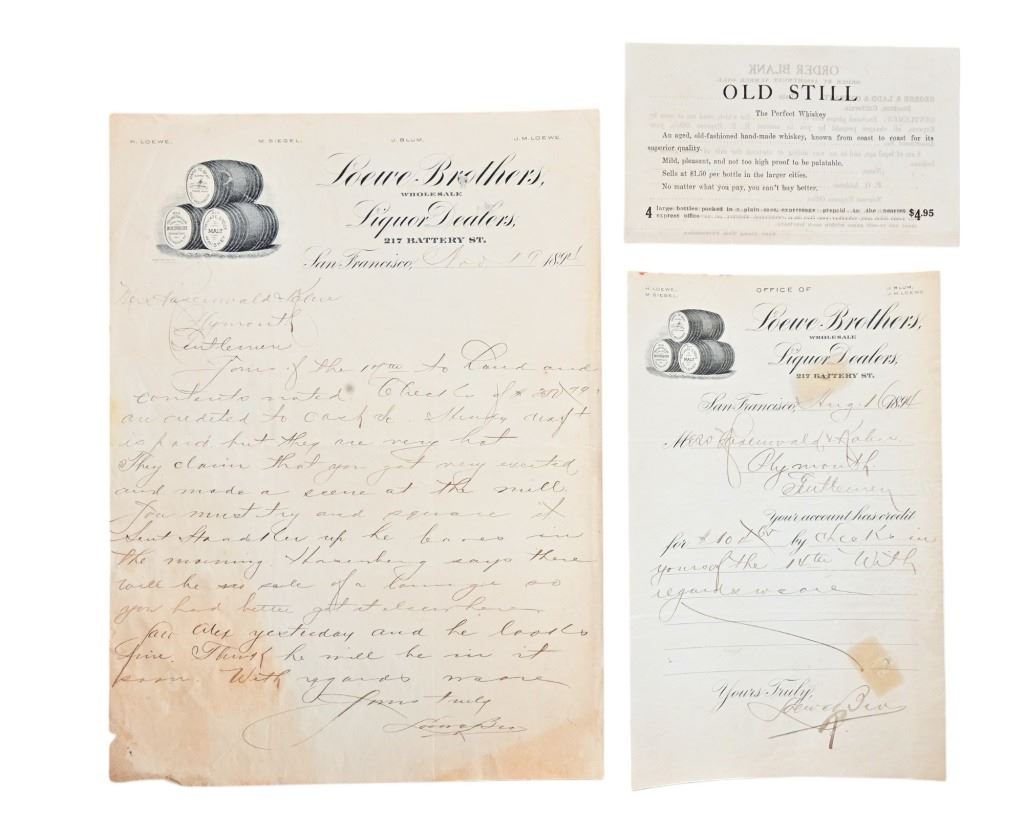 H. LOEWE. M. SIEGEL. J. BLUM. J. M. LOEWE.
Loewe Brothers,
WHOLESALE
Liquor Dealers,
217 BATTERY ST.
MALT
San Francisco, Nov 17 1894
Rosenwald & Kahn
Plymouth
Gentlemen
Yours of the 17th to hand and
contents noted. Check of $
are credited to Money draft
is paid but they are very hot
They claim that you got very excited
and made a scene at the mill
You must try and square it
Sent up he leaves in
the morning. says there
will be no sale of a so
you had better get it elsewhere
Saw Alex yesterday and he looks
fine. Think he will be in it
soon. With regards we are
Yours truly
Loewe Bro
OLD STILL
The Perfect Whiskey
An aged, old-fashioned hand-made whiskey, known from coast to coast for its
superior quality.
Mild, pleasant, and not too high proof to be palatable.
Sells at $1.50 per bottle in the larger cities.
No matter what you pay, you can't buy better.
4 large bottles packed in a plain case, expressage prepaid to the nearest
express office $4.95
ORDER BLANK
H. LOEWE. OFFICE OF J. BLUM.
M. SIEGEL. J. M. LOEWE
Loewe Brothers,
WHOLESALE
Liquor Dealers,
217 BATTERY ST.
MALT
San Francisco, Aug 16 1894
Mess Rosenwald & Kahn
Plymouth
Gentlemen
Your account has credit
for $ by checks in
yours of the 14th With
regards we are
Yours Truly,
Loewe Bro